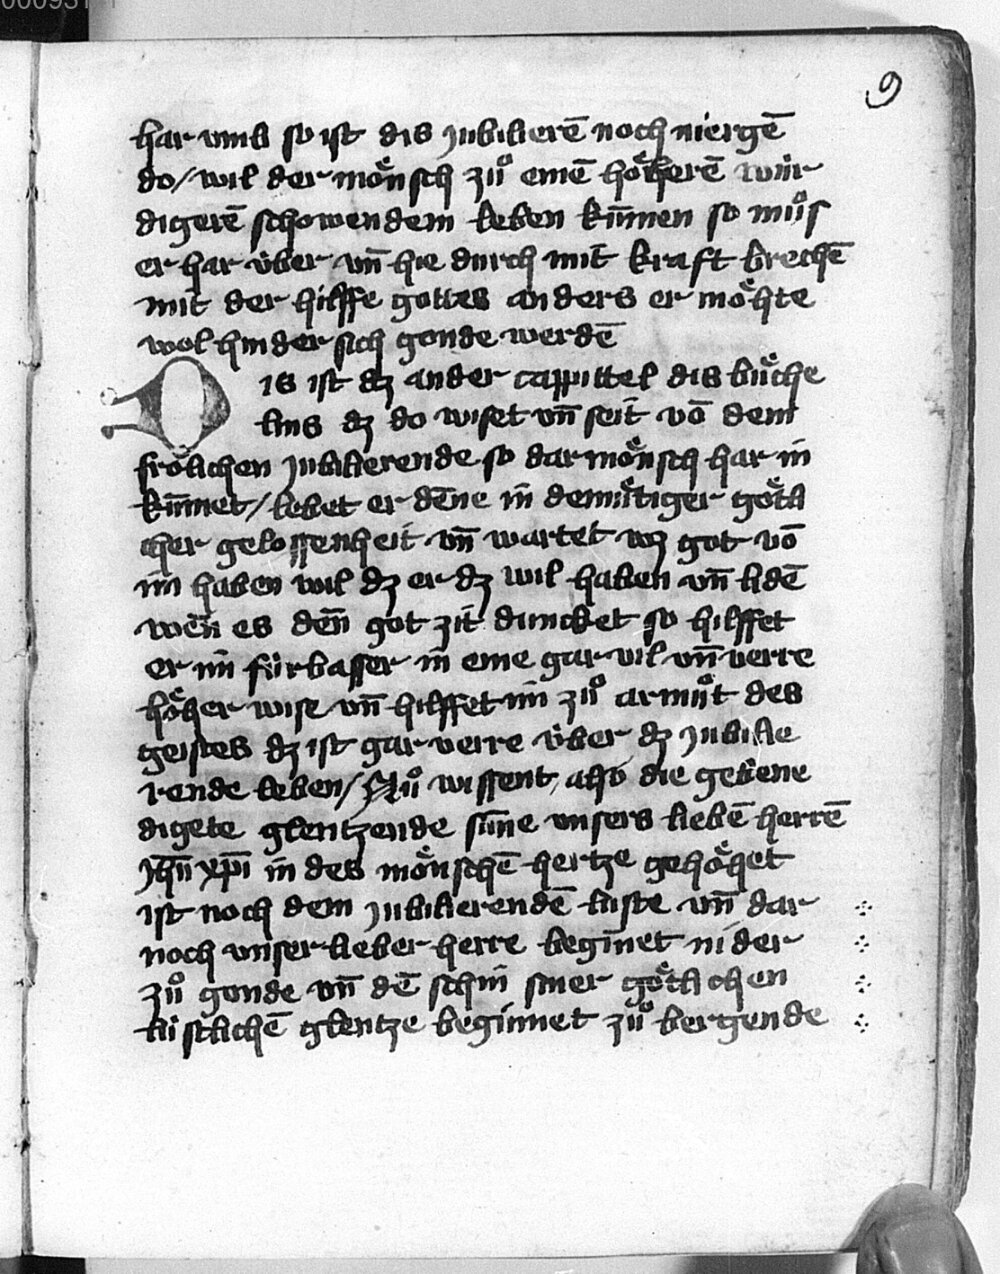 9
har vmb so ist dis jubilierē noch niergē
do / wil der moͤnsch zuͦ eīnē hoͤherē wúr
digerē schowendem leben kūmen so muͦs
er har úber vn̄ hie durch mit kraft brechē
mit der hilffe gottes anders er moͤhte
wol hinder sich gonde werdē
Dis ist dz ander cappittel dis buͤche
lins dz do wiset vn̄ seit vō dem
froͤlichen jubilierende so der moͤnsch har in
kūmet / lebet er dēne in demuͤtiger goͤtli
cher gelossenheit vn̄ wartet wz got vō
im haben wil dz er dz wil haben vn̄ lidē
wēn es den̄ got zit duncket so hilffet
er im fúrbasser in eine gar vil vn̄ verre
hoͤher wise vn̄ hilffet im zuͦ armuͦt des
geistes dz ist gar verre úber dz jubilie
rende leben / Nuͦ wissent also die gebene
digete glentzende sūne vnsers liebē herrē
jhū xpī in des moͤnschē hertze gehoͤhet
ist noch dem jubilierendē luste vn̄ dar
noch vnser lieber herre begīnet nider
zuͦ gonde vn̄ dē schin siner goͤtlichen
lústlichē glentze beginnet zuͦ bergende